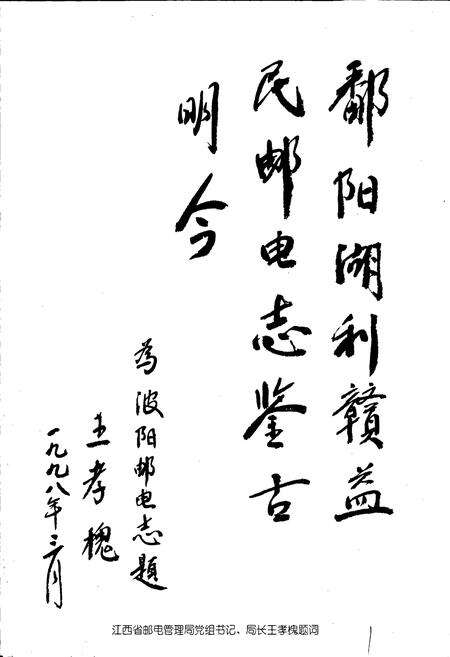 鄱阳湖利赣益
民邮电志鉴古
明今
为波阳邮电志题
王孝槐
一九九八年三月
江西省邮电管理局党组书记、局长王孝槐题词